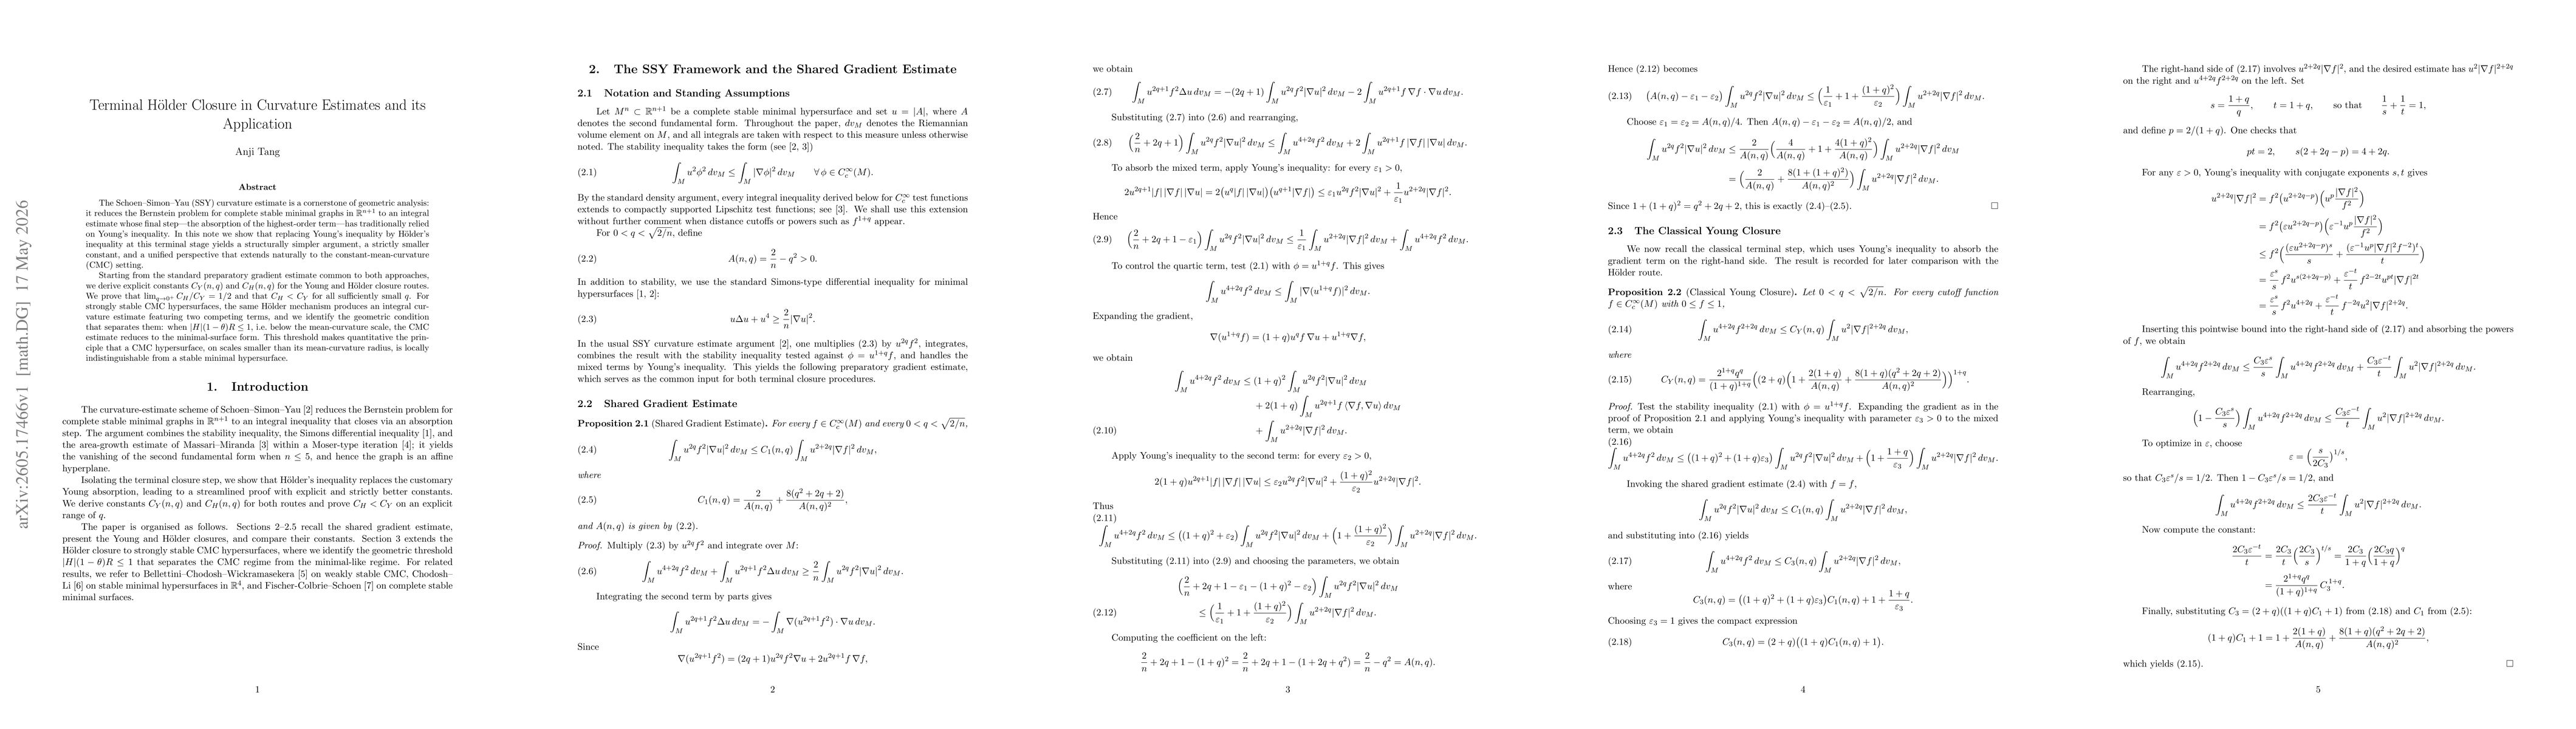 arXiv:2605.17466v1 [math.DG] 17 May 2026
Terminal Hölder Closure in Curvature Estimates and its
Application
Anji Tang
Abstract
The Schoen–Simon–Yau (SSY) curvature estimate is a cornerstone of geometric analysis:
it reduces the Bernstein problem for complete stable minimal graphs in ℝⁿ⁺¹ to an integral
estimate whose final step—the absorption of the highest-order term—has traditionally relied
on Young's inequality. In this note we show that replacing Young's inequality by Hölder's
inequality at this terminal stage yields a structurally simpler argument, a strictly smaller
constant, and a unified perspective that extends naturally to the constant-mean-curvature
(CMC) setting.
Starting from the standard preparatory gradient estimate common to both approaches,
we derive explicit constants C_Y(n, q) and C_H(n, q) for the Young and Hölder closure routes.
We prove that lim_{q→0⁺} C_H/C_Y = 1/2 and that C_H < C_Y for all sufficiently small q. For
strongly stable CMC hypersurfaces, the same Hölder mechanism produces an integral cur-
vature estimate featuring two competing terms, and we identify the geometric condition
that separates them: when |H|(1 − θ)R ≤ 1, i.e. below the mean-curvature scale, the CMC
estimate reduces to the minimal-surface form. This threshold makes quantitative the prin-
ciple that a CMC hypersurface, on scales smaller than its mean-curvature radius, is locally
indistinguishable from a stable minimal hypersurface.
1. Introduction
The curvature-estimate scheme of Schoen–Simon–Yau [2] reduces the Bernstein problem for
complete stable minimal graphs in ℝⁿ⁺¹ to an integral inequality that closes via an absorption
step. The argument combines the stability inequality, the Simons differential inequality [1], and
the area-growth estimate of Massari–Miranda [3] within a Moser-type iteration [4]; it yields
the vanishing of the second fundamental form when n ≤ 5, and hence the graph is an affine
hyperplane.
Isolating the terminal closure step, we show that Hölder's inequality replaces the customary
Young absorption, leading to a streamlined proof with explicit and strictly better constants.
We derive constants C_Y(n, q) and C_H(n, q) for both routes and prove C_H < C_Y on an explicit
range of q.
The paper is organised as follows. Sections 2–2.5 recall the shared gradient estimate,
present the Young and Hölder closures, and compare their constants. Section 3 extends the
Hölder closure to strongly stable CMC hypersurfaces, where we identify the geometric threshold
|H|(1 − θ)R ≤ 1 that separates the CMC regime from the minimal-like regime. For related
results, we refer to Bellettini–Chodosh–Wickramasekera [5] on weakly stable CMC, Chodosh–
Li [6] on stable minimal hypersurfaces in ℝ⁴, and Fischer-Colbrie–Schoen [7] on complete stable
minimal surfaces.
1
2. The SSY Framework and the Shared Gradient Estimate
2.1 Notation and Standing Assumptions
Let Mⁿ ⊂ ℝⁿ⁺¹ be a complete stable minimal hypersurface and set u = |A|, where A
denotes the second fundamental form. Throughout the paper, dv_M denotes the Riemannian
volume element on M, and all integrals are taken with respect to this measure unless otherwise
noted. The stability inequality takes the form (see [2, 3])
(2.1) ∫_M u²φ² dv_M ≤ ∫_M |∇φ|² dv_M ∀ φ ∈ C_c^∞(M).
By the standard density argument, every integral inequality derived below for C_c^∞ test functions
extends to compactly supported Lipschitz test functions; see [3]. We shall use this extension
without further comment when distance cutoffs or powers such as f^{1+q} appear.
For 0 < q < √(2/n), define
(2.2) A(n, q) = 2/n − q² > 0.
In addition to stability, we use the standard Simons-type differential inequality for minimal
hypersurfaces [1, 2]:
(2.3) uΔu + u⁴ ≥ (2/n)|∇u|².
In the usual SSY curvature estimate argument [2], one multiplies (2.3) by u^{2q}f², integrates,
combines the result with the stability inequality tested against φ = u^{1+q}f, and handles the
mixed terms by Young's inequality. This yields the following preparatory gradient estimate,
which serves as the common input for both terminal closure procedures.
2.2 Shared Gradient Estimate
Proposition 2.1 (Shared Gradient Estimate). For every f ∈ C_c^∞(M) and every 0 < q < √(2/n),
(2.4) ∫_M u^{2q}f²|∇u|² dv_M ≤ C₁(n, q) ∫_M u^{2+2q}|∇f|² dv_M,
where
(2.5) C₁(n, q) = 2/A(n, q) + 8(q² + 2q + 2)/A(n, q)²,
and A(n, q) is given by (2.2).
Proof. Multiply (2.3) by u^{2q}f² and integrate over M:
(2.6) ∫_M u^{4+2q}f² dv_M + ∫_M u^{2q+1}f²Δu dv_M ≥ (2/n) ∫_M u^{2q}f²|∇u|² dv_M.
Integrating the second term by parts gives
∫_M u^{2q+1}f²Δu dv_M = − ∫_M ∇(u^{2q+1}f²) · ∇u dv_M.
Since
∇(u^{2q+1}f²) = (2q + 1)u^{2q}f²∇u + 2u^{2q+1}f ∇f,
2
we obtain
(2.7) ∫_M u^{2q+1}f²Δu dv_M = −(2q + 1) ∫_M u^{2q}f²|∇u|² dv_M − 2 ∫_M u^{2q+1}f ∇f · ∇u dv_M.
Substituting (2.7) into (2.6) and rearranging,
(2.8) (2/n + 2q + 1) ∫_M u^{2q}f²|∇u|² dv_M ≤ ∫_M u^{4+2q}f² dv_M + 2 ∫_M u^{2q+1}f |∇f| |∇u| dv_M.
To absorb the mixed term, apply Young's inequality: for every ε₁ > 0,
2u^{2q+1}|f| |∇f| |∇u| = 2(u^q|f| |∇u|)(u^{q+1}|∇f|) ≤ ε₁u^{2q}f²|∇u|² + (1/ε₁)u^{2q+2}|∇f|².
Hence
(2.9) (2/n + 2q + 1 − ε₁) ∫_M u^{2q}f²|∇u|² dv_M ≤ (1/ε₁) ∫_M u^{2q+2}|∇f|² dv_M + ∫_M u^{4+2q}f² dv_M.
To control the quartic term, test (2.1) with φ = u^{1+q}f. This gives
∫_M u^{4+2q}f² dv_M ≤ ∫_M |∇(u^{1+q}f)|² dv_M.
Expanding the gradient,
∇(u^{1+q}f) = (1 + q)u^q f ∇u + u^{1+q}∇f,
we obtain
∫_M u^{4+2q}f² dv_M ≤ (1 + q)² ∫_M u^{2q}f²|∇u|² dv_M
+ 2(1 + q) ∫_M u^{2q+1}f ⟨∇f, ∇u⟩ dv_M
(2.10) + ∫_M u^{2+2q}|∇f|² dv_M.
Apply Young's inequality to the second term: for every ε₂ > 0,
2(1 + q)u^{2q+1}|f| |∇f| |∇u| ≤ ε₂u^{2q}f²|∇u|² + ((1 + q)²/ε₂)u^{2q+2}|∇f|².
Thus
(2.11)
∫_M u^{4+2q}f² dv_M ≤ ((1 + q)² + ε₂) ∫_M u^{2q}f²|∇u|² dv_M + (1 + (1 + q)²/ε₂) ∫_M u^{2+2q}|∇f|² dv_M.
Substituting (2.11) into (2.9) and choosing the parameters, we obtain
(2/n + 2q + 1 − ε₁ − (1 + q)² − ε₂) ∫_M u^{2q}f²|∇u|² dv_M
(2.12) ≤ (1/ε₁ + 1 + (1 + q)²/ε₂) ∫_M u^{2+2q}|∇f|² dv_M.
Computing the coefficient on the left:
2/n + 2q + 1 − (1 + q)² = 2/n + 2q + 1 − (1 + 2q + q²) = 2/n − q² = A(n, q).
3
Hence (2.12) becomes
(2.13) (A(n, q) − ε₁ − ε₂) ∫_M u^{2q}f²|∇u|² dv_M ≤ (1/ε₁ + 1 + (1 + q)²/ε₂) ∫_M u^{2+2q}|∇f|² dv_M.
Choose ε₁ = ε₂ = A(n, q)/4. Then A(n, q) − ε₁ − ε₂ = A(n, q)/2, and
∫_M u^{2q}f²|∇u|² dv_M ≤ (2/A(n, q))(4/A(n, q) + 1 + 4(1 + q)²/A(n, q)) ∫_M u^{2+2q}|∇f|² dv_M
= (2/A(n, q) + 8(1 + (1 + q)²)/A(n, q)²) ∫_M u^{2+2q}|∇f|² dv_M.
Since 1 + (1 + q)² = q² + 2q + 2, this is exactly (2.4)–(2.5). □
2.3 The Classical Young Closure
We now recall the classical terminal step, which uses Young's inequality to absorb the
gradient term on the right-hand side. The result is recorded for later comparison with the
Hölder route.
Proposition 2.2 (Classical Young Closure). Let 0 < q < √(2/n). For every cutoff function
f ∈ C_c^∞(M) with 0 ≤ f ≤ 1,
(2.14) ∫_M u^{4+2q}f^{2+2q} dv_M ≤ C_Y(n, q) ∫_M u²|∇f|^{2+2q} dv_M,
where
(2.15) C_Y(n, q) = (2^{1+q}q^q/(1 + q)^{1+q})((2 + q)(1 + 2(1 + q)/A(n, q) + 8(1 + q)(q² + 2q + 2)/A(n, q)²))^{1+q}.
Proof. Test the stability inequality (2.1) with φ = u^{1+q}f. Expanding the gradient as in the
proof of Proposition 2.1 and applying Young's inequality with parameter ε₃ > 0 to the mixed
term, we obtain
(2.16)
∫_M u^{4+2q}f² dv_M ≤ ((1 + q)² + (1 + q)ε₃) ∫_M u^{2q}f²|∇u|² dv_M + (1 + (1 + q)/ε₃) ∫_M u^{2+2q}|∇f|² dv_M.
Invoking the shared gradient estimate (2.4) with f = f,
∫_M u^{2q}f²|∇u|² dv_M ≤ C₁(n, q) ∫_M u^{2+2q}|∇f|² dv_M,
and substituting into (2.16) yields
(2.17) ∫_M u^{4+2q}f² dv_M ≤ C₃(n, q) ∫_M u^{2+2q}|∇f|² dv_M,
where
C₃(n, q) = ((1 + q)² + (1 + q)ε₃)C₁(n, q) + 1 + (1 + q)/ε₃.
Choosing ε₃ = 1 gives the compact expression
(2.18) C₃(n, q) = (2 + q)((1 + q)C₁(n, q) + 1).
4
The right-hand side of (2.17) involves u^{2+2q}|∇f|², and the desired estimate has u²|∇f|^{2+2q}
on the right and u^{4+2q}f^{2+2q} on the left. Set
s = (1 + q)/q, t = 1 + q, so that 1/s + 1/t = 1,
and define p = 2/(1 + q). One checks that
pt = 2, s(2 + 2q − p) = 4 + 2q.
For any ε > 0, Young's inequality with conjugate exponents s, t gives
u^{2+2q}|∇f|² = f²(u^{2+2q−p})(u^p |∇f|²/f²)
= f²(εu^{2+2q−p})(ε^{−1}u^p |∇f|²/f²)
≤ f²((εu^{2+2q−p})^s/s + (ε^{−1}u^p|∇f|²f^{−2})^t/t)
= (ε^s/s) f²u^{s(2+2q−p)} + (ε^{−t}/t) f^{2−2t}u^{pt}|∇f|^{2t}
= (ε^s/s) f²u^{4+2q} + (ε^{−t}/t) f^{−2q}u²|∇f|^{2+2q}.
Inserting this pointwise bound into the right-hand side of (2.17) and absorbing the powers
of f, we obtain
∫_M u^{4+2q}f^{2+2q} dv_M ≤ (C₃ε^s/s) ∫_M u^{4+2q}f^{2+2q} dv_M + (C₃ε^{−t}/t) ∫_M u²|∇f|^{2+2q} dv_M.
Rearranging,
(1 − C₃ε^s/s) ∫_M u^{4+2q}f^{2+2q} dv_M ≤ (C₃ε^{−t}/t) ∫_M u²|∇f|^{2+2q} dv_M.
To optimize in ε, choose
ε = (s/(2C₃))^{1/s},
so that C₃ε^s/s = 1/2. Then 1 − C₃ε^s/s = 1/2, and
∫_M u^{4+2q}f^{2+2q} dv_M ≤ (2C₃ε^{−t}/t) ∫_M u²|∇f|^{2+2q} dv_M.
Now compute the constant:
2C₃ε^{−t}/t = (2C₃/t)(2C₃/s)^{t/s} = (2C₃/(1 + q))(2C₃q/(1 + q))^q
= (2^{1+q}q^q/(1 + q)^{1+q}) C₃^{1+q}.
Finally, substituting C₃ = (2 + q)((1 + q)C₁ + 1) from (2.18) and C₁ from (2.5):
(1 + q)C₁ + 1 = 1 + 2(1 + q)/A(n, q) + 8(1 + q)(q² + 2q + 2)/A(n, q)²,
which yields (2.15). □
5